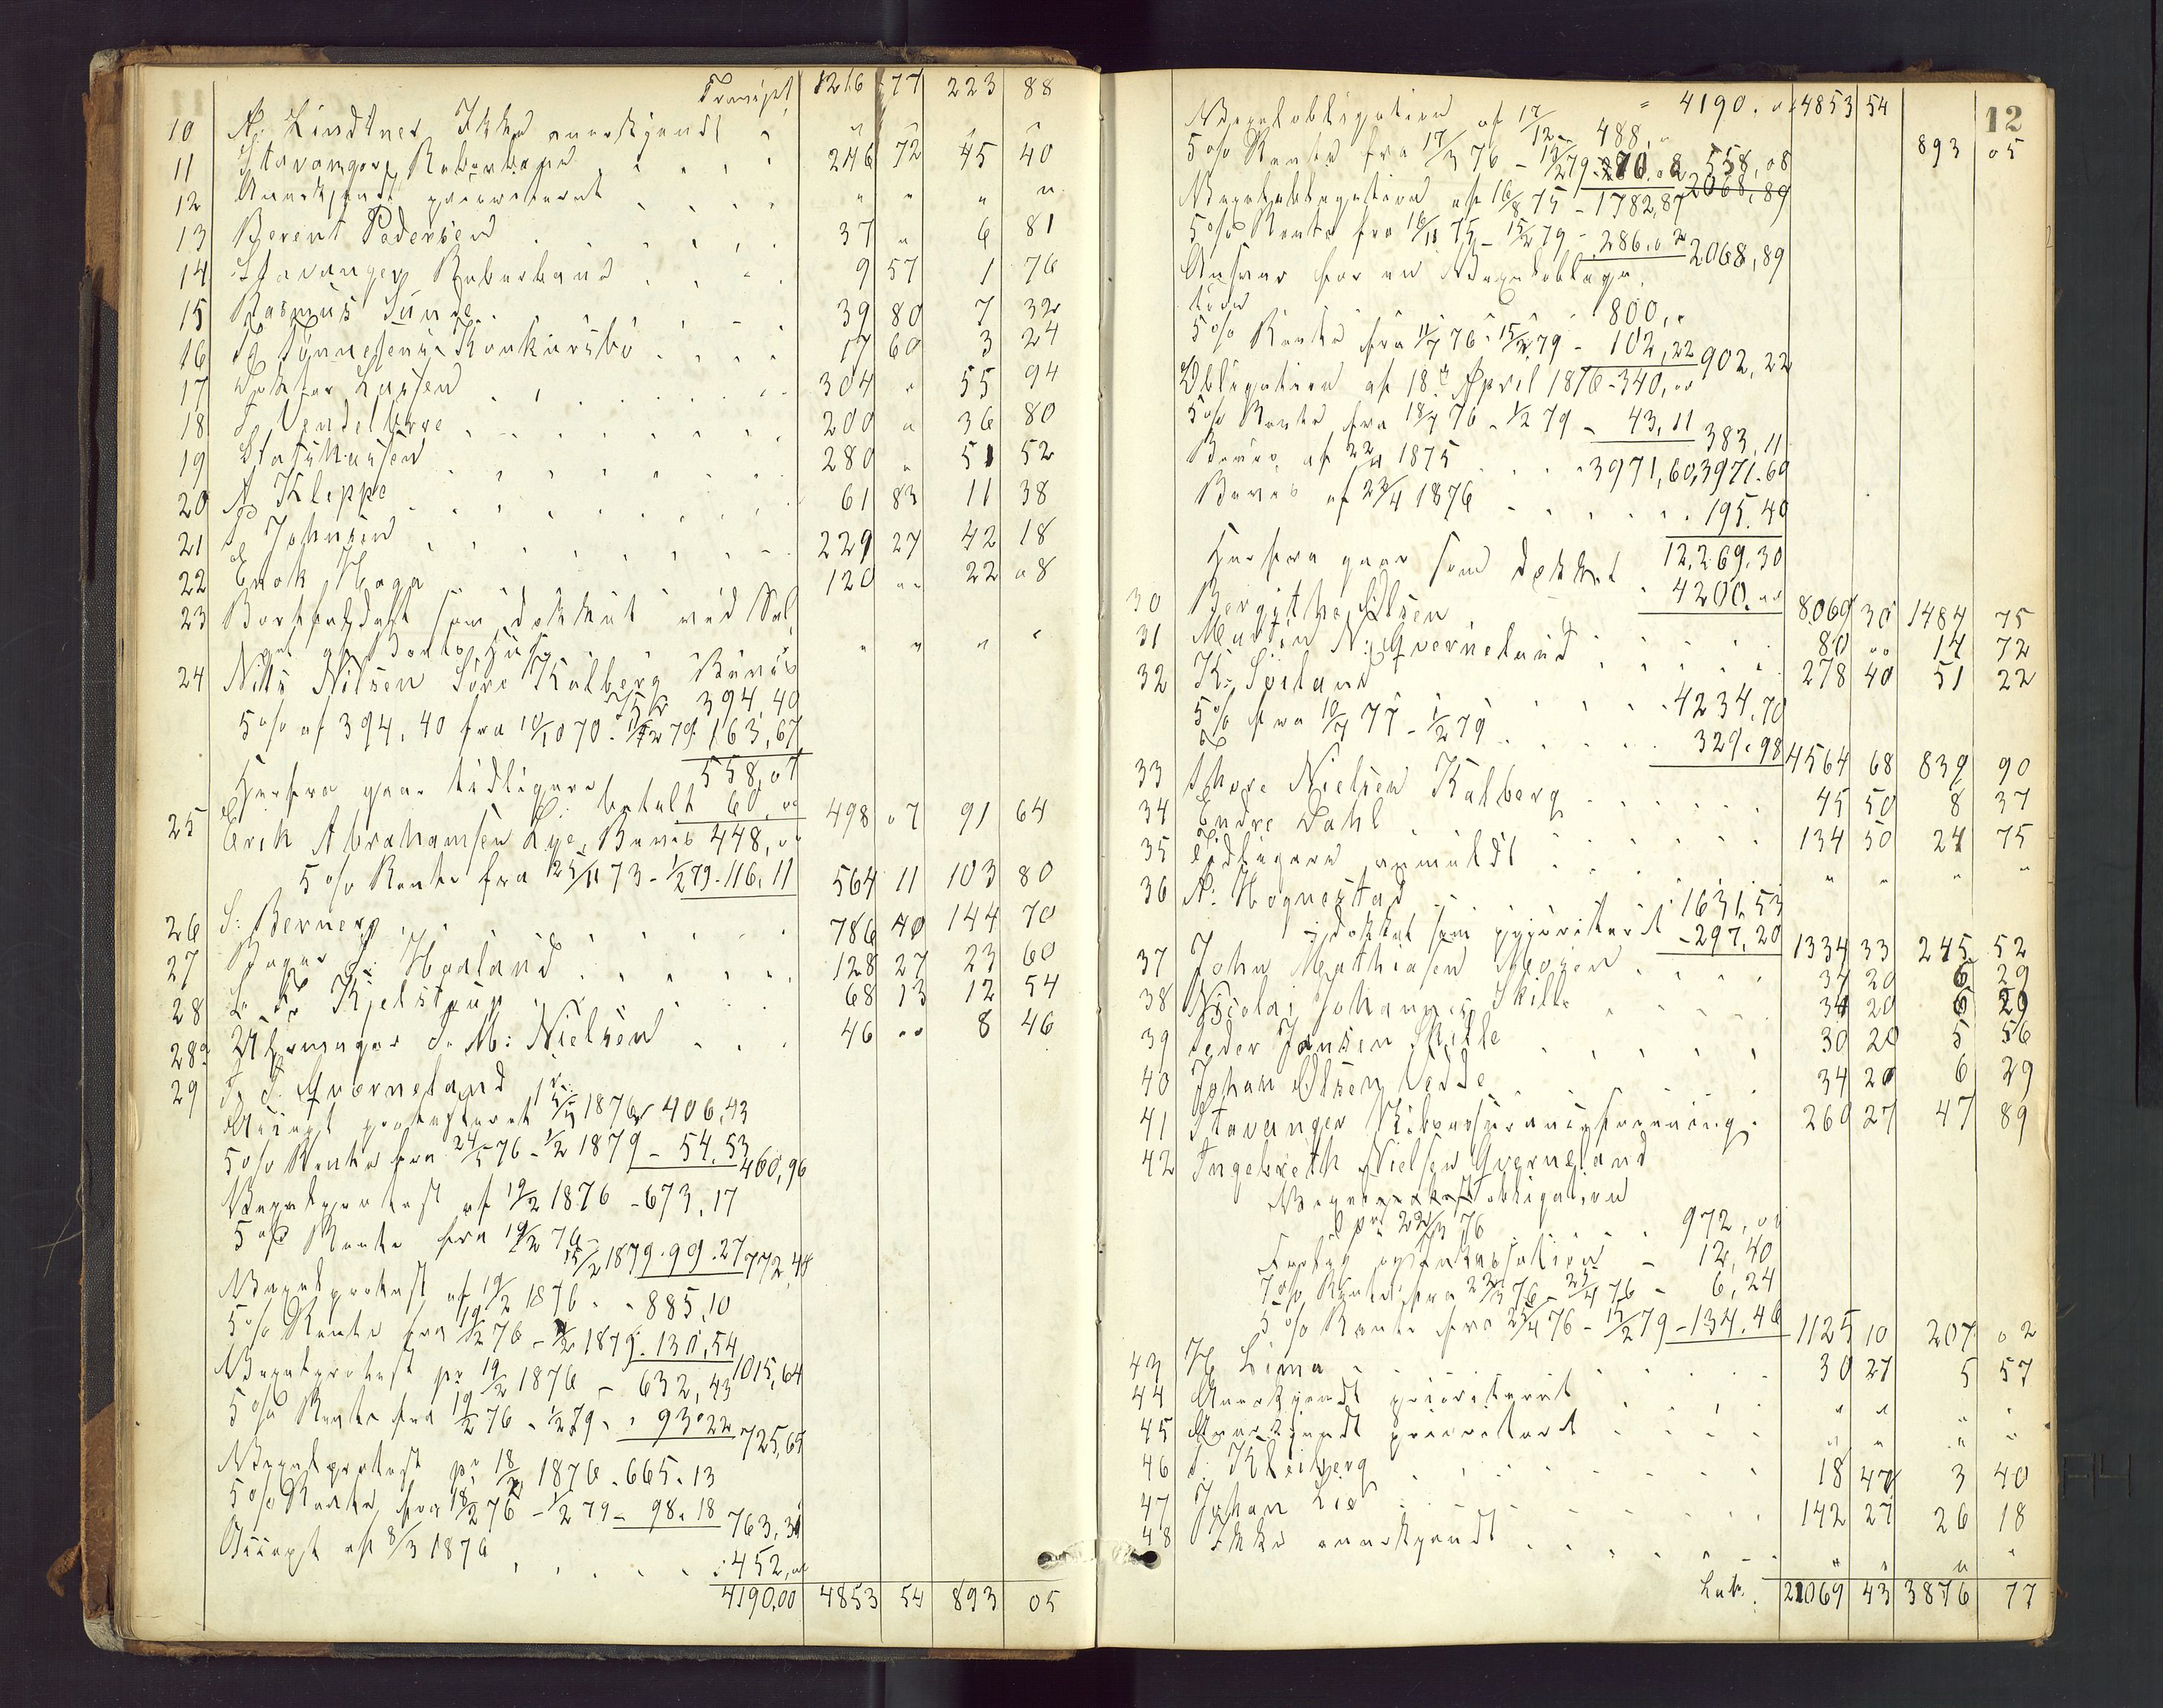 Transport 1216 77 223 88
10 A. Lindtner Ikke anerkjendt " " " "
11 Stavanger Reberbane 246 72 45 40
12 Anerkjendt prioriteret " " " "
13 Berent Pedersen 37 " 6 81
14 Stavanger Reberbane 9 57 1 76
15 Rasmus Sunde 39 80 7 32
16 Tønnesens Konkursbo 17 60 3 24
17 Doktor Lassen 304 " 55 94
18 Vendelboe 200 " 36 80
19 280 " 51 52
20 A Kleppe 61 83 11 38
21 Johnsen 229 27 42 18
22 Enok Haga 120 "" 22 08
23 Bortfaldt som dækket ved Sal-
get af " " " "
24 Nils Nilsen Søre Kalberg Bevis
394,40
5% af 394,40 fra 10/10 70 - 1/2 79 163,67
558,07
Herfra gaar tidligere betalt 60,00 498 07 91 64
25 Erik Abrahamsen Lye, Bevis 448,00
5% Rente fra 25/11 73 - 1/2 79 - 116,11 564 11 103 80
26 S. Berner 786 40 144 70
27 Bager Haaland 128 27 23 60
28 Kjelstrup 68 13 12 54
28a Uhrmager J. M. Nielsen 46 "" 8 46
29 Qverneland
Accept protesteret 1876 406,43
5% Rente fra 24/5 76 - 1/2 1879 - 54,53 460,96
Vexelprotest af 19/2 1876 - 673,17
5% Rente fra 19/2 76 -
15/2 1879 - 99.27 772,48
Vexelprotest af 19/2 1876 - 885,10
5% Rente fra 19/2 76 - 1/2 1879 - 130,54 1015,64
Vexelprotest pr 19/2 1876 - 632,43
5% Rente fra 19/2 76 - 1/2 79 - 93.22 725,65
Vexelprotest pr 18/2 1876 - 665.13
5% Rente fra 18/2 76 - 1/2 79 - 98.18 763,31
Accept af 8/3 1876 452,00
4190,00 4853 54 893 05
12
4190. 00 4853 54 893 05
Vexelobligation af 17/12 - 488,"
5% Rente fra 17/3 76 - 15/2 79 - 70.08 558,08
Vexelobligation af 16/8 75 - 1782,87 2068,89
5% Rente fra 16/11 75 - 15/2 79 - 286.02 2068,89
Ansvar for en Vexelobliga-
tion 800,"
5% Rente fra 11/7 76 - 15/2 79 - 102,22 902,22
Obligation af 18de April 1876 - 340,00
5% Rente fra 18/7 76 - 1/2 79 - 43,11 383,11
Bevis af 22/11 1875 - 3971,60, 3971.60
Bevis af 22/4 1876 195.40
12,269.30
Herfra gaar som dækket 4200.00 8069 30 1484 75
30 Bergithe Olsen 80 "" 14 72
31 Martin N. Qverneland 278 40 51 22
32 K. Soiland 4234,70
5% fra 10/7 77 - 1/2 79 329.98 4564 68 839 90
33 Thore Nielsen Kalberg 45 50 8 37
34 Endre Dahl 134 50 24 75
35 Tidligere anmeldt " " " "
36 A. Hognestad 1631,53
dækket som prioriteret - 297,20 1334 33 245 52
37 John Mathiasen 34 20 6 29
38 Nicolai Johannes Skille 34 20 6 29
39 Peder Jansen Skille 30 20 5 56
40 Johan Olsen Vedde 34 20 6 29
41 Stavanger 260 27 47 89
42 Ingebreth Nielsen Qverneland
Vexelobligation
pr 22/3 76 972,00
12,40
7% Rente fra 22/3 76 - 25/4 76 - 6,24
5% Rente fra 25/4 76 - 15/2 79 - 134.46 1125 10 207 02
43 Lima 30 27 5 57
44 Anerkjendt prioriteret " " " "
45 Anerkjendt prioriteret " " " "
46 Kleiberg 18 47 3 40
47 Johan Lie 142 27 26 18
48 Ikke anerkjendt " " " "
Lat. 21069 43 3876 77